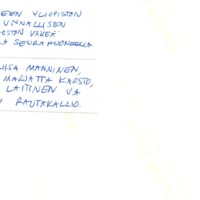 EEN YLIOPISTON
KUNNALLISEN
OSTON VÄKEÄ
LA SEURAHUONEELLA
IISA MANNINEN,
MARJATTA KARSTO,
LAITINEN JA
RAUTAKALLIO.